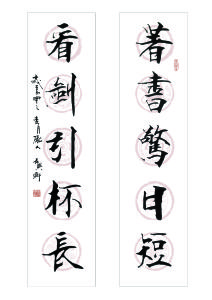 著書驚日短
看劍引杯長